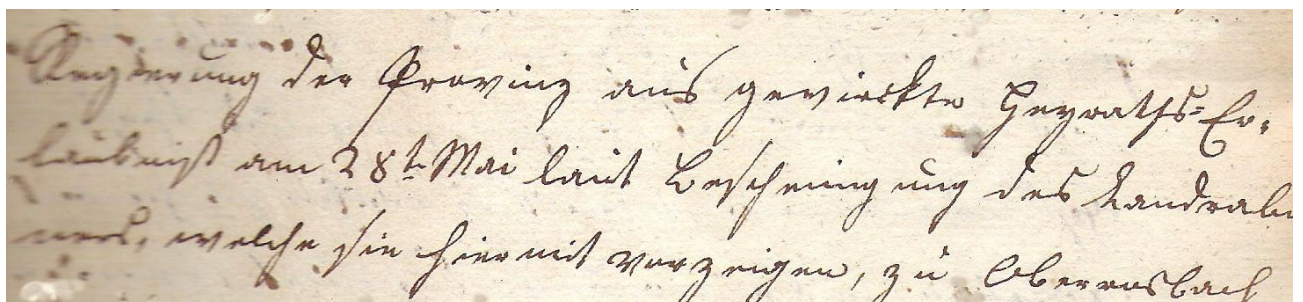 Regierung der Provinz aus gewirckte Heyraths=Er=
laubniß am 28t. Mai laut Bescheinigung des
ners, welche sie hiermit vorzeigen, zu